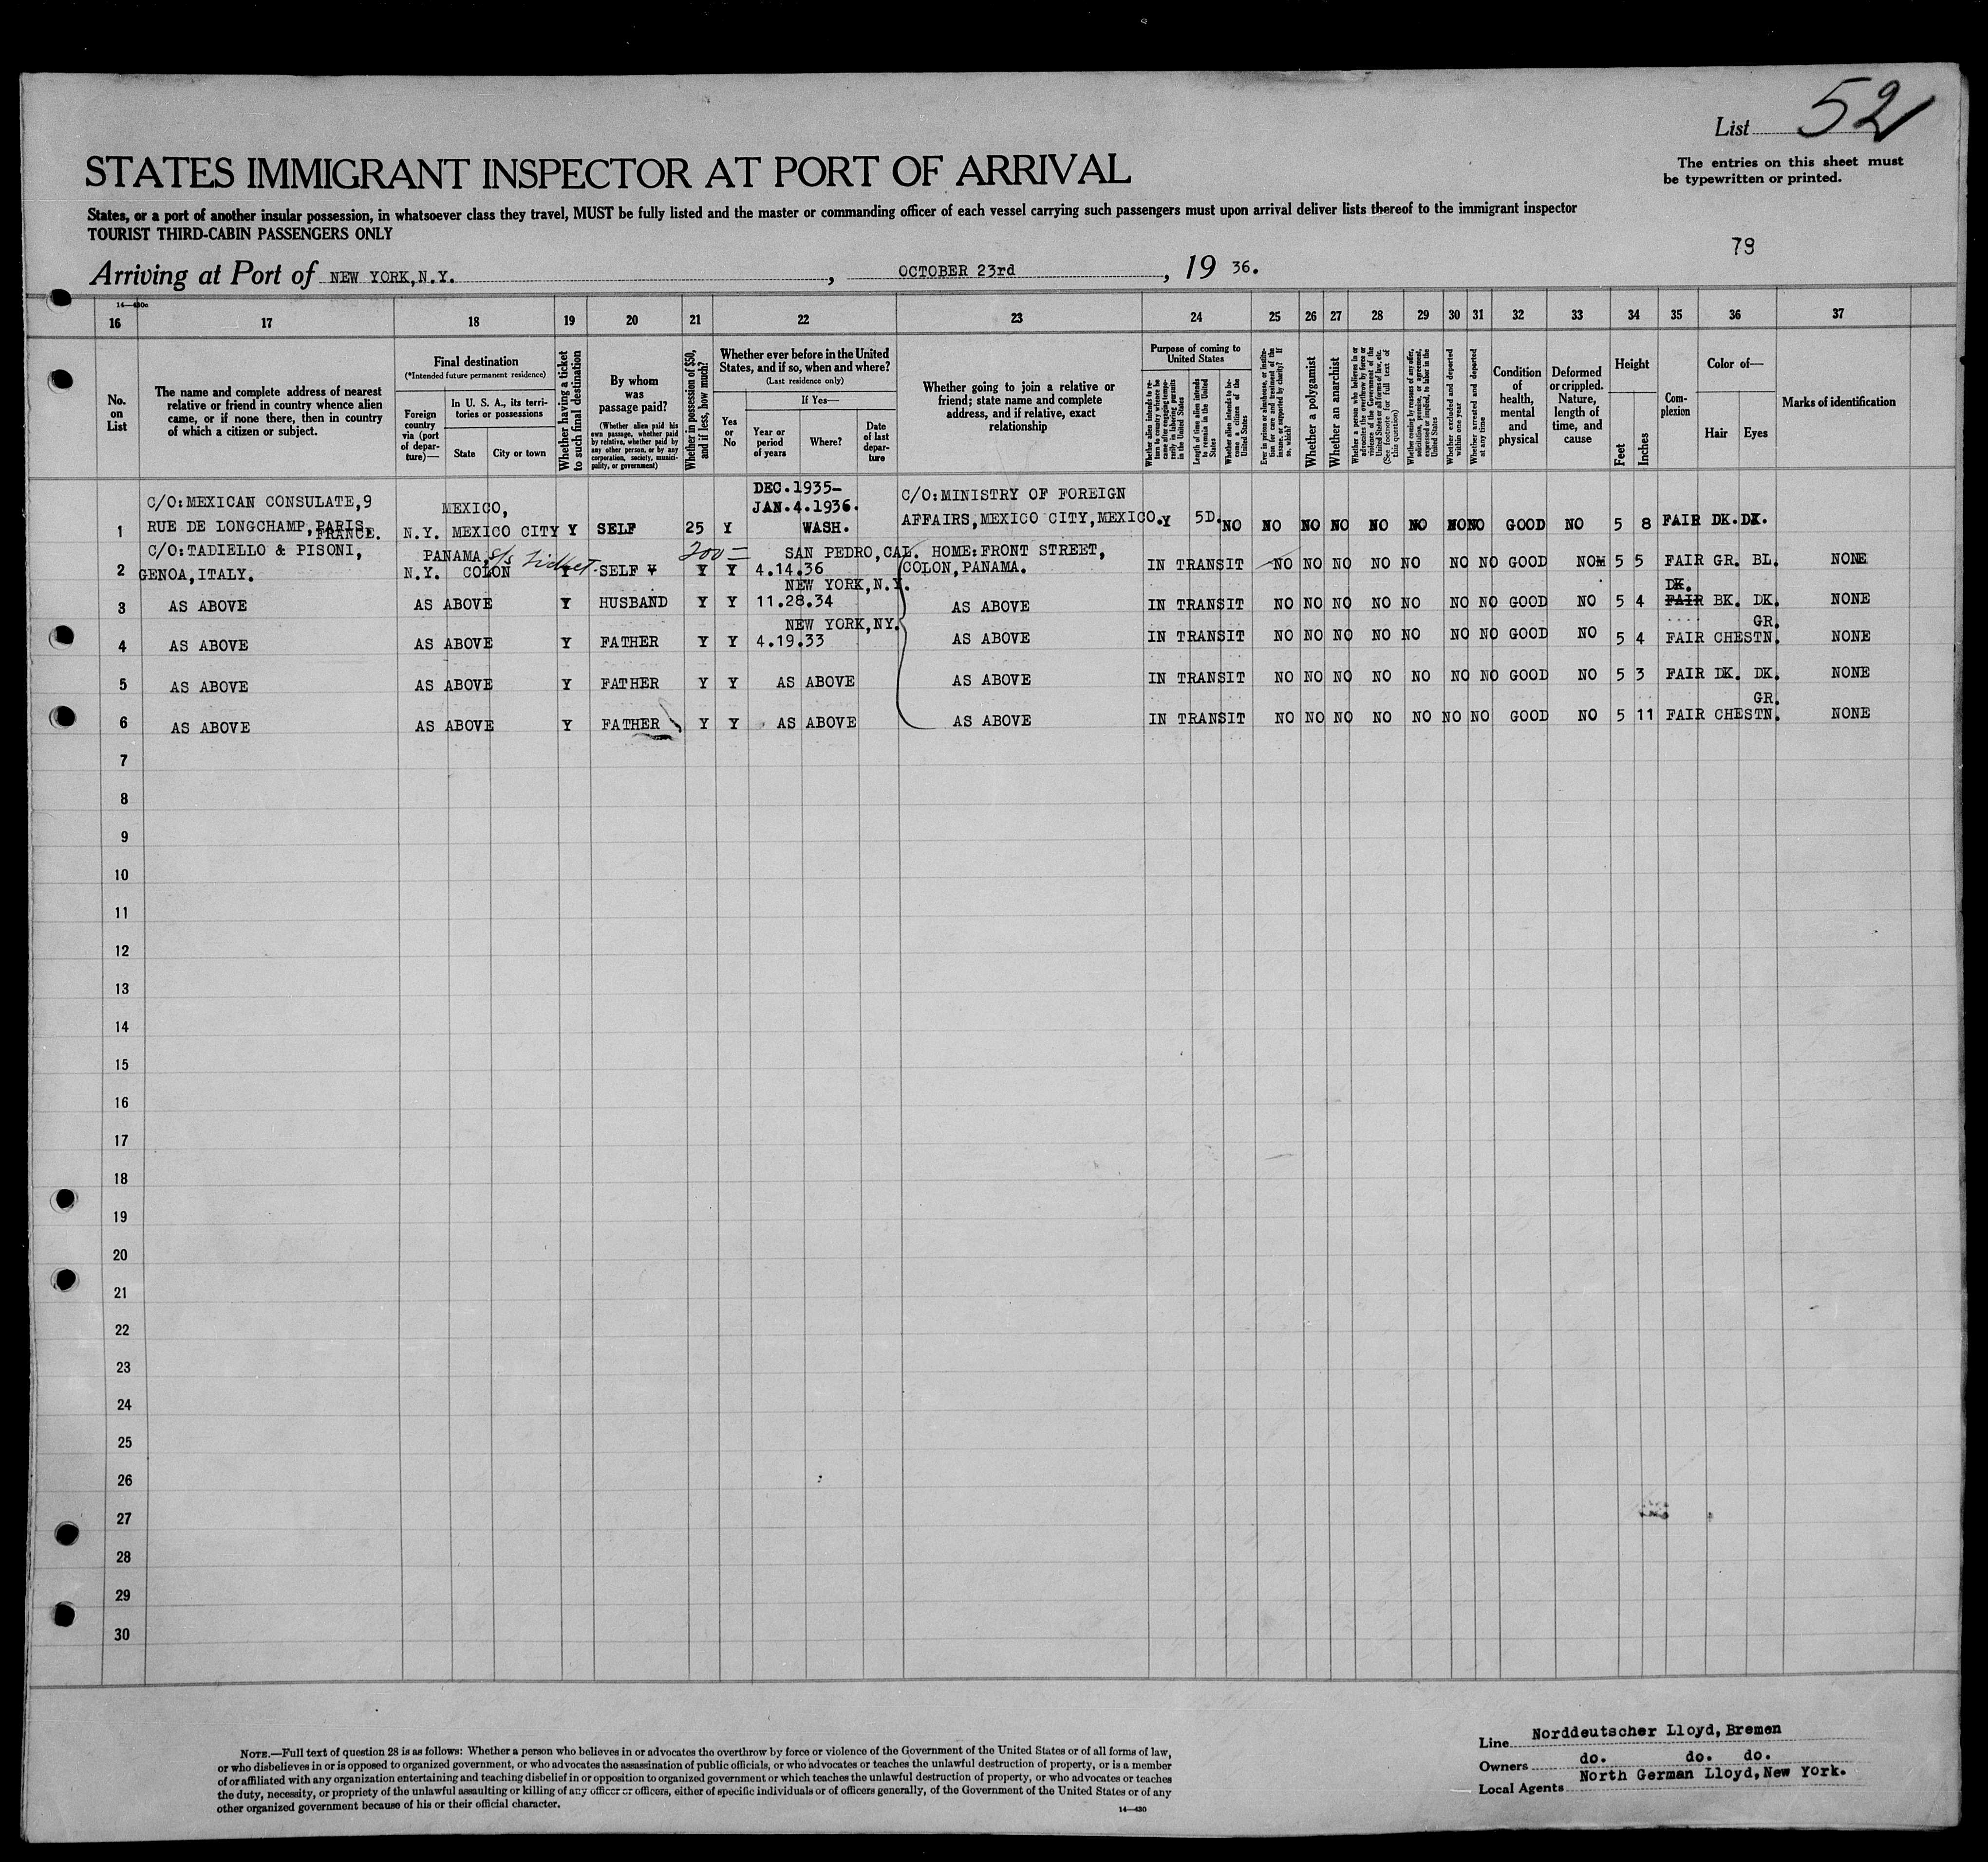 List 52
The entries on this sheet must
be typewritten or printed.
STATES IMMIGRANT INSPECTOR AT PORT OF ARRIVAL
States, or a port of another insular possession, in whatsoever class they travel, MUST be fully listed and the master or commanding officer of each vessel carrying such passengers must upon arrival deliver lists thereof to the immigrant inspector
TOURIST THIRD-CABIN PASSENGERS ONLY
79
Arriving at Port of NEW YORK,N.Y., OCTOBER 23rd, 19 36.
16 17 18 19 20 21 22 23 24 25 26 27 28 29 30 31 32 33 34 35 36 37
No. on List
The name and complete address of nearest
relative or friend in country whence alien
came, or if none there, then in country
of which a citizen or subject.
Final destination
(*Intended future permanent residence)
Foreign country via (port of departure)—
In U. S. A., its territories or possessions
State
City or town
Whether having a ticket to such final destination
By whom was passage paid?
(Whether alien paid his own passage, whether paid by relative, whether paid by any other person, or by any corporation, society, municipality, or government)
Whether in possession of $50, and if less, how much?
Whether ever before in the United
States, and if so, when and where?
(Last residence only)
Yes or No
If Yes—
Year or period of years
Where?
Date of last departure
Whether going to join a relative or
friend; state name and complete
address, and if relative, exact
relationship
Purpose of coming to United States
Whether alien intends to return to country whence he came after engaging temporarily in laboring pursuits in the United States
Length of time alien intends to remain in the United States
Whether alien intends to become a citizen of the United States
Ever in prison or almshouse, or institution for care and treatment of the insane, or supported by charity? If so, which?
Whether a polygamist
Whether an anarchist
Whether a person who believes in or advocates the overthrow by force or violence of the Government of the United States or all forms of law, etc. (See footnote for full text of this question)
Whether coming by reason of any offer, solicitation, promise, or agreement, expressed or implied, to labor in the United States
Whether excluded and deported within one year
Whether arrested and deported at any time
Condition of health, mental and physical
Deformed or crippled. Nature, length of time, and cause
Height
Feet
Inches
Complexion
Color of—
Hair
Eyes
Marks of identification
1 C/O:MEXICAN CONSULATE,9 RUE DE LONGCHAMP,PARIS,FRANCE. N.Y. MEXICO, MEXICO CITY Y SELF 25 Y DEC.1935-JAN.4.1936. WASH. C/O:MINISTRY OF FOREIGN AFFAIRS,MEXICO CITY,MEXICO. Y 5D. NO NO NO NO NO NO NO NO GOOD NO 5 8 FAIR DK. DK.
2 C/O:TADIELLO & PISONI, GENOA,ITALY. N.Y. PANAMA, COLON s/s Ticket Y SELF Y 200= Y Y 4.14.36 SAN PEDRO,CAL. HOME:FRONT STREET, COLON,PANAMA. IN TRANSIT NO NO NO NO NO NO NO GOOD NO 5 5 FAIR GR. BL. NONE
3 AS ABOVE AS ABOVE Y HUSBAND Y Y 11.28.34 NEW YORK,N.Y. AS ABOVE IN TRANSIT NO NO NO NO NO NO NO GOOD NO 5 4 FAIR DK. BK. DK. NONE
4 AS ABOVE AS ABOVE Y FATHER Y Y 4.19.33 NEW YORK,NY. AS ABOVE IN TRANSIT NO NO NO NO NO NO NO GOOD NO 5 4 FAIR CHESTN. GR. NONE
5 AS ABOVE AS ABOVE Y FATHER Y Y AS ABOVE AS ABOVE IN TRANSIT NO NO NO NO NO NO NO GOOD NO 5 3 FAIR DK. DK. NONE
6 AS ABOVE AS ABOVE Y FATHER Y Y AS ABOVE AS ABOVE IN TRANSIT NO NO NO NO NO NO NO GOOD NO 5 11 FAIR CHESTN. GR. NONE
7
8
9
10
11
12
13
14
15
16
17
18
19
20
21
22
23
24
25
26
27
28
29
30
NOTE.—Full text of question 28 is as follows: Whether a person who believes in or advocates the overthrow by force or violence of the Government of the United States or of all forms of law,
or who disbelieves in or is opposed to organized government, or who advocates the assassination of public officials, or who advocates or teaches the unlawful destruction of property, or is a member
of or affiliated with any organization entertaining and teaching disbelief in or opposition to organized government or which teaches the unlawful destruction of property, or who advocates or teaches
the duty, necessity, or propriety of the unlawful assaulting or killing of any officer or officers, either of specific individuals or of officers generally, of the Government of the United States or of any
other organized government because of his or their official character.
14—430
Line Norddeutscher Lloyd,Bremen
Owners do. do. do.
Local Agents North German Lloyd,New York.